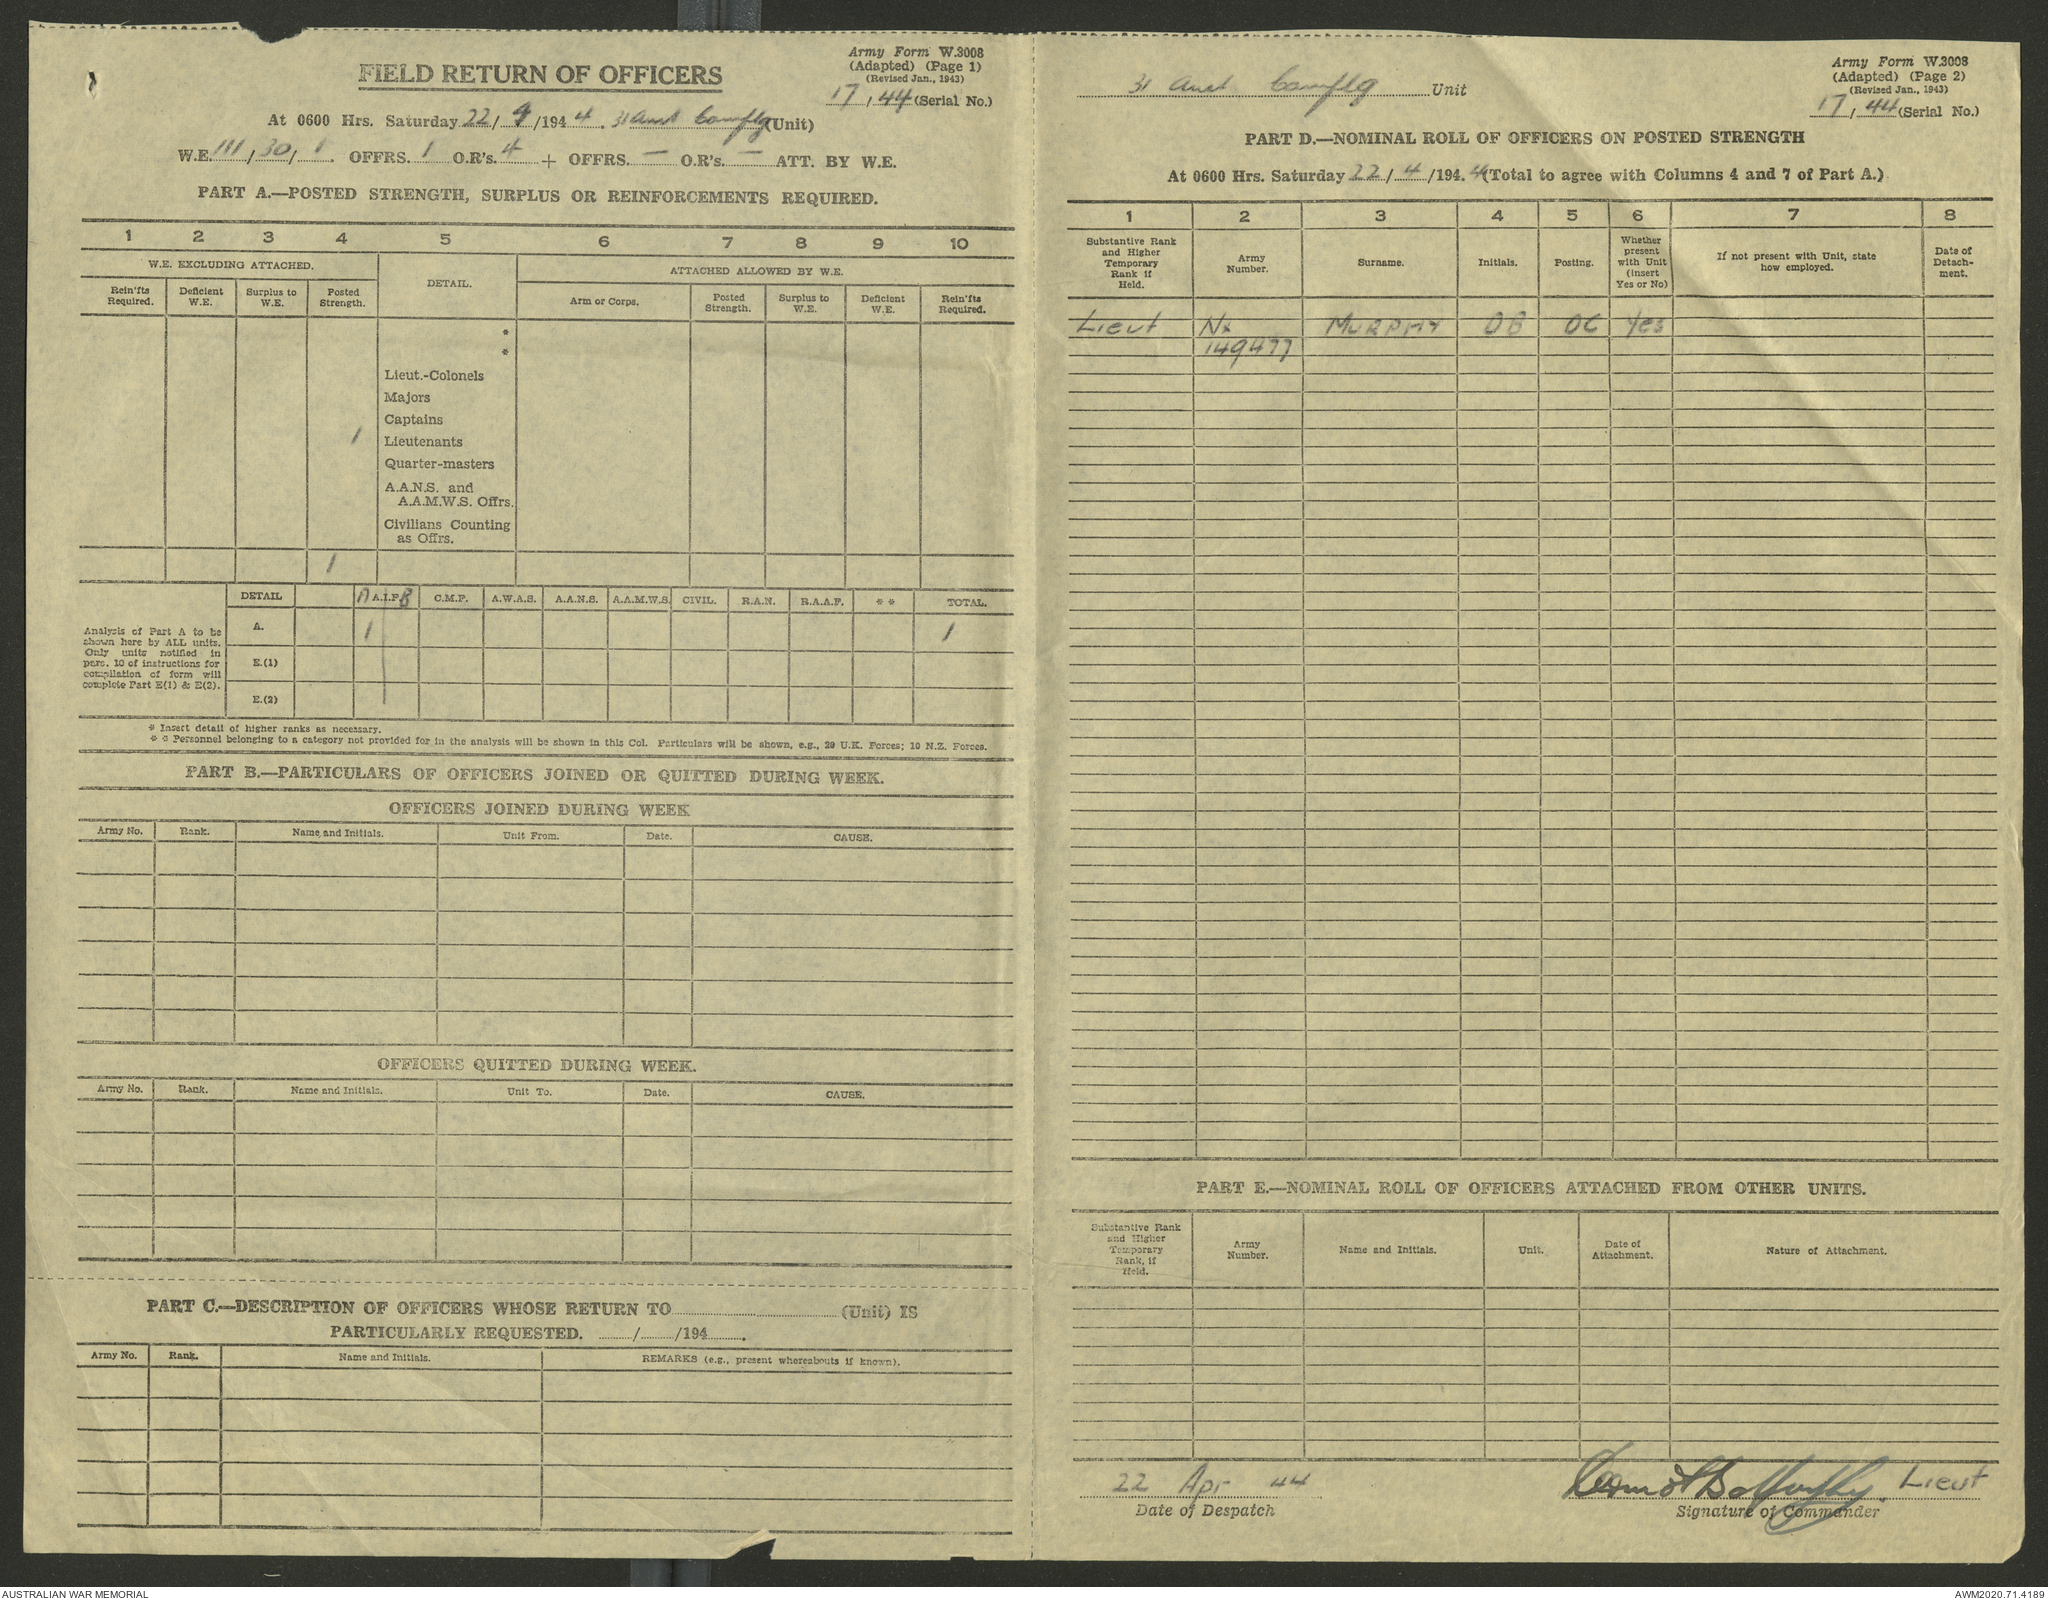 Army Form W.3008
(Adapted) (Page 1)
(Revised Jan., 1943)
17 / 44 (Serial No.)
FIELD RETURN OF OFFICERS
At 0600 Hrs. Saturday 22/4/1944. 31 Aust Camflg (Unit)
W.E. 111/30/1. OFFRS. 1 O.R's. 4 + OFFRS. — O.R's. — ATT. BY W.E.
PART A.—POSTED STRENGTH, SURPLUS OR REINFORCEMENTS REQUIRED.
1 2 3 4 5 6 7 8 9 10
W.E. EXCLUDING ATTACHED. DETAIL. ATTACHED ALLOWED BY W.E.
Rein'fts Required. Deficient W.E. Surplus to W.E. Posted Strength. Arm or Corps. Posted Strength. Surplus to W.E. Deficient W.E. Rein'fts Required.
*
*
Lieut.-Colonels
Majors
Captains
1 Lieutenants
Quarter-masters
A.A.N.S. and
A.A.M.W.S. Offrs.
Civilians Counting
as Offrs.
1
DETAIL A A.I.F. B C.M.F. A.W.A.S. A.A.N.S. A.A.M.W.S. CIVIL. R.A.N. R.A.A.F. * * TOTAL.
Analysis of Part A to be shown here by ALL units. Only units notified in para. 10 of instructions for compilation of form will complete Part E(1) & E(2).
A. 1 1
E.(1)
E.(2)
* Insert detail of higher ranks as necessary.
* * Personnel belonging to a category not provided for in the analysis will be shown in this Col. Particulars will be shown, e.g., 29 U.K. Forces; 10 N.Z. Forces.
PART B.—PARTICULARS OF OFFICERS JOINED OR QUITTED DURING WEEK.
OFFICERS JOINED DURING WEEK
Army No. Rank. Name and Initials. Unit From. Date. CAUSE.
OFFICERS QUITTED DURING WEEK.
Army No. Rank. Name and Initials. Unit To. Date. CAUSE.
PART C.—DESCRIPTION OF OFFICERS WHOSE RETURN TO (Unit) IS
PARTICULARLY REQUESTED. / /194 .
Army No. Rank. Name and Initials. REMARKS (e.g., present whereabouts if known).
Army Form W.3008
(Adapted) (Page 2)
(Revised Jan., 1943)
17 / 44 (Serial No.)
31 Aust Camflg Unit
PART D.—NOMINAL ROLL OF OFFICERS ON POSTED STRENGTH
At 0600 Hrs. Saturday 22/4/1944 (Total to agree with Columns 4 and 7 of Part A.)
1 2 3 4 5 6 7 8
Substantive Rank and Higher Temporary Rank if Held. Army Number. Surname. Initials. Posting. Whether present with Unit (insert Yes or No) If not present with Unit, state how employed. Date of Detach-ment.
Lieut Nx MURPHY DB OC Yes
149477
PART E.—NOMINAL ROLL OF OFFICERS ATTACHED FROM OTHER UNITS.
Substantive Rank and Higher Temporary Rank, if Held. Army Number. Name and Initials. Unit. Date of Attachment. Nature of Attachment.
22 Apr 44 Lieut
Date of Despatch Signature of Commander
AUSTRALIAN WAR MEMORIAL AWM2020.71.4189